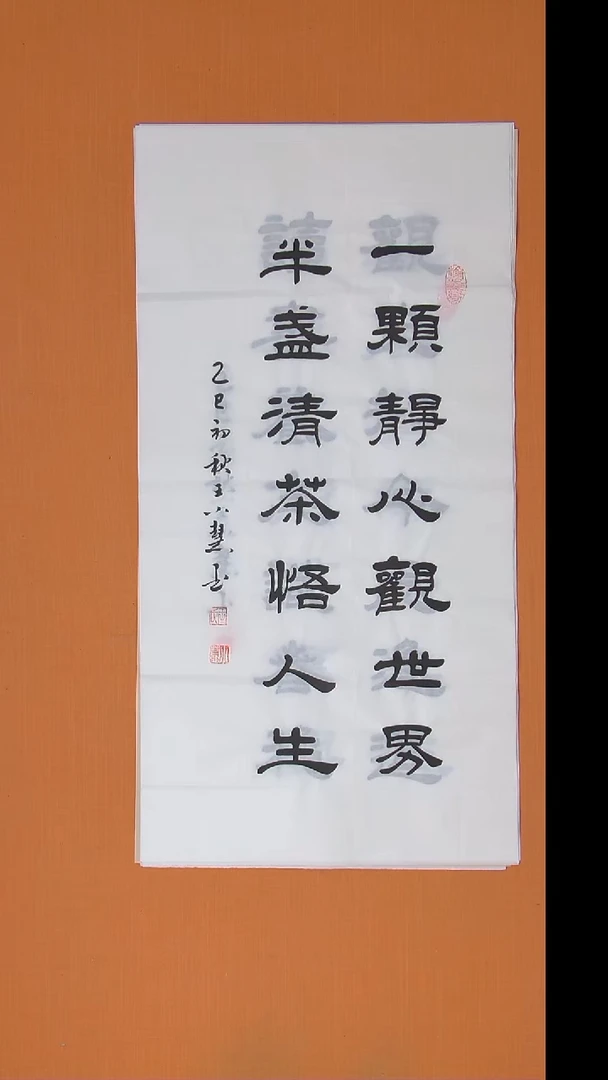 一顆靜心觀世界
半盏清茶悟人生
乙巳初秋王小慧书